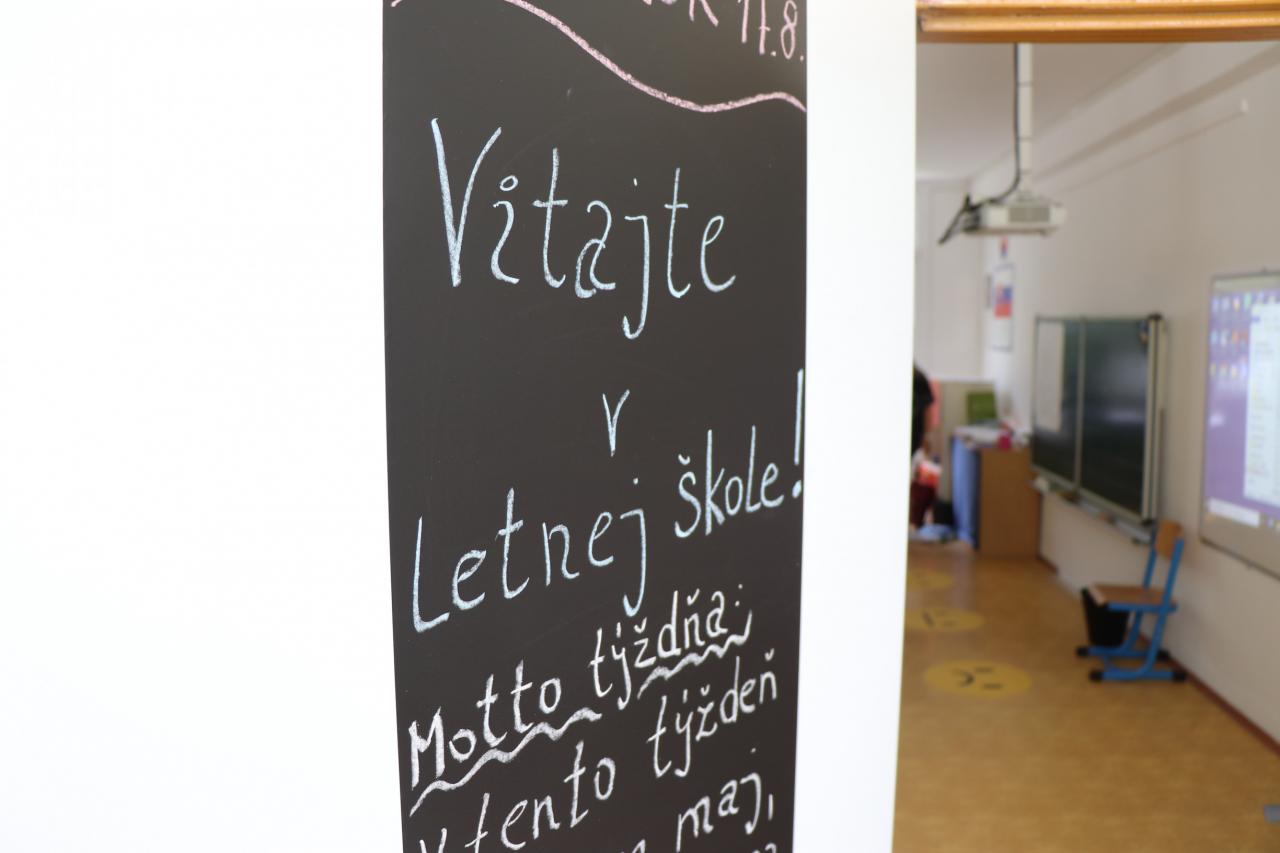 17.8.
Vitajte
v
Letnej škole!
Motto týždňa:
V tento týždeň
maj,